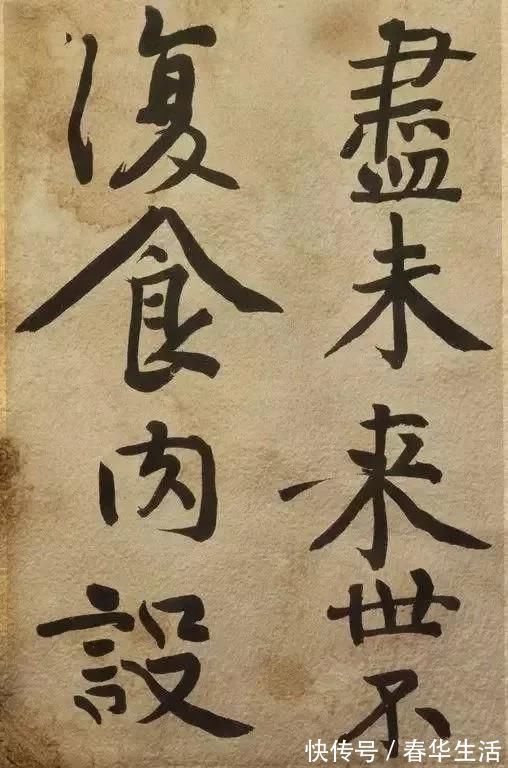 盡未来世不
復食肉設
快传号/春华生活